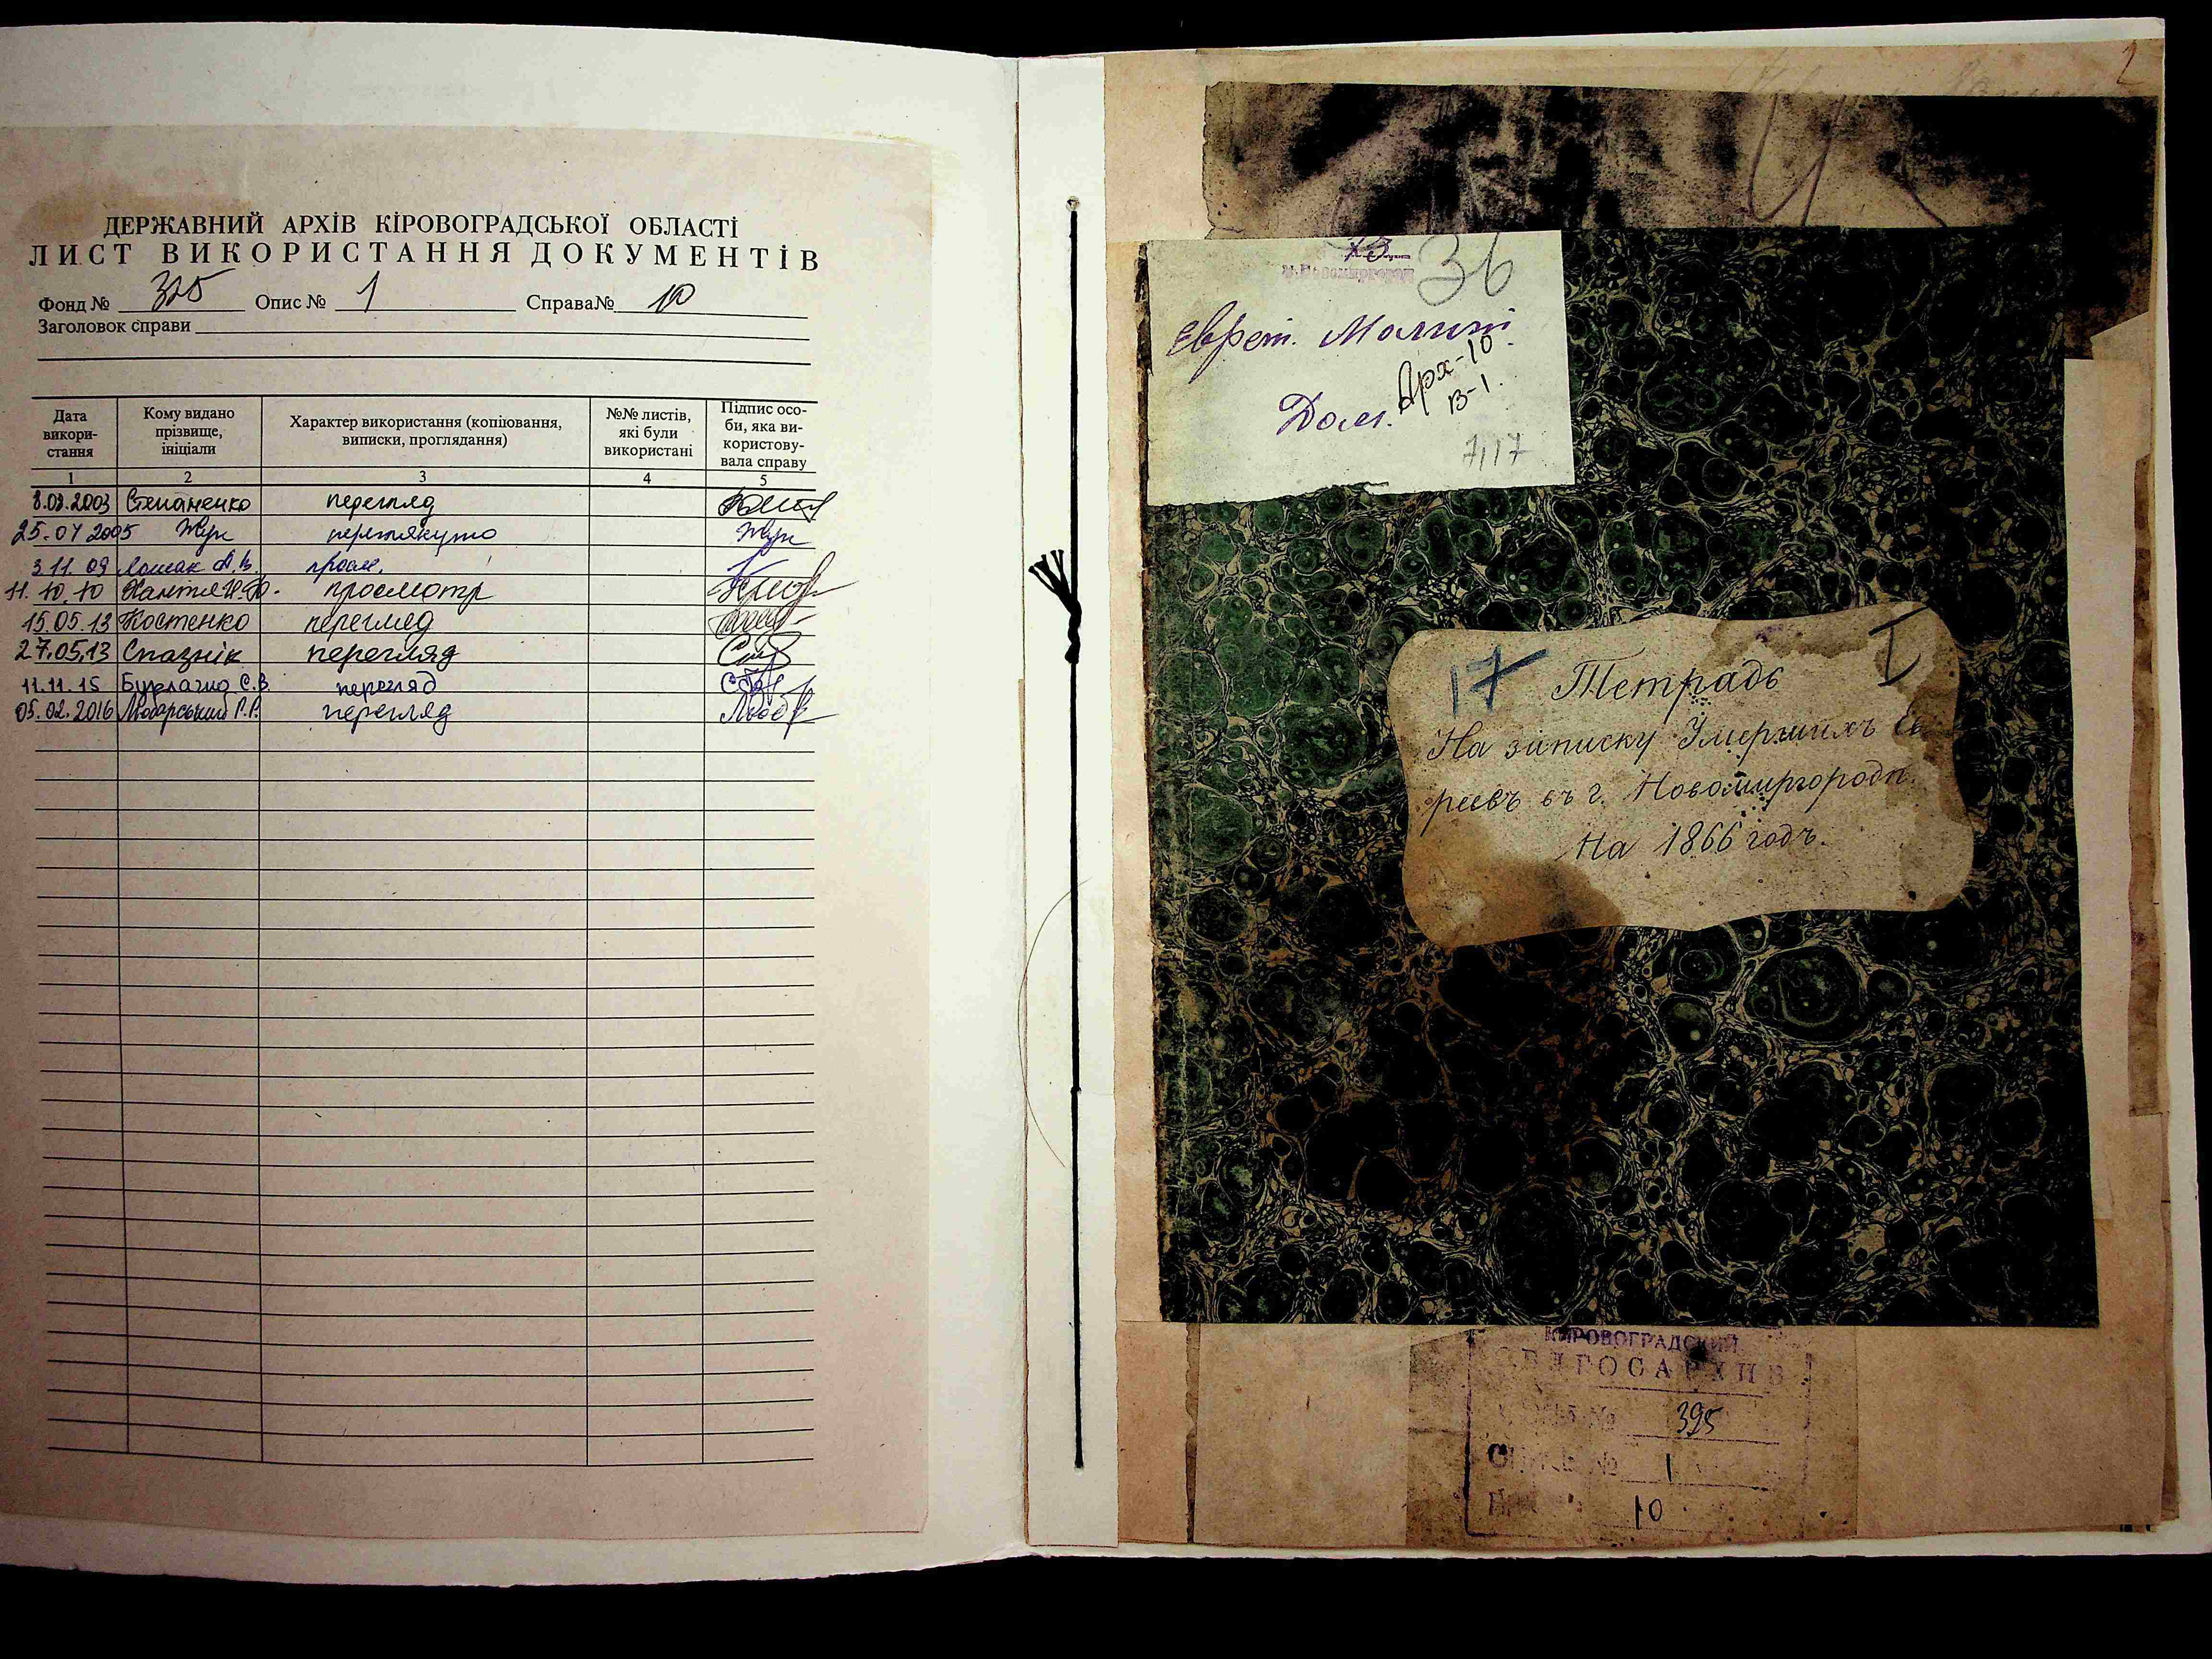 ДЕРЖАВНИЙ АРХІВ КІРОВОГРАДСЬКОЇ ОБЛАСТІ
ЛИСТ ВИКОРИСТАННЯ ДОКУМЕНТІВ
Фонд № 395 Опис № 1 Справа№ 10
Заголовок справи
Дата викори-стання
Кому видано прізвище, ініціали
Характер використання (копіювання, виписки, проглядання)
№№ листів, які були використані
Підпис осо-би, яка ви-користову-вала справу
1 2 3 4 5
8.09.2003 Степаненко перегляд
25.07 2005 Жук переглянуто Жук
3 11. 09 Лошак А.В.
11. 10. 10 просмотр
15.05.13 Костенко перегляд
27.05.13 Спазнік перегляд
11.11.15 С.В. перегляд
05.02.2016 Любарський Р.Р. перегляд
2
36
Еврет.
Дом. Арх-10
В-1.
7/17
17 Тетрадь I
На записку Умершихъ Ев
реевъ въ г. Новомиргородѣ.
На 1866 годъ.
КИРОВОГРАДСКИЙ
ОБЛГОСАРХИВ
№ 395
ОПИСЬ № 1
10